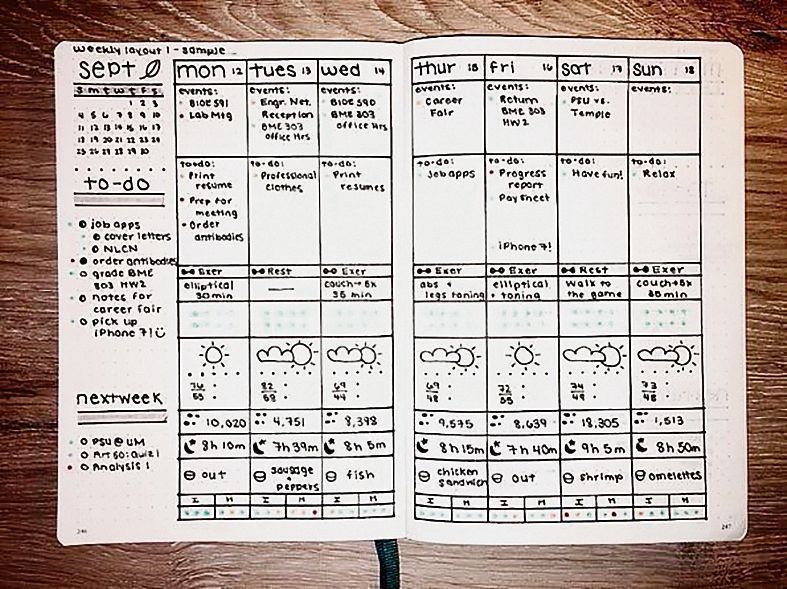 weekly layout 1 - sample
sept
s m t w t f s
1 2 3
4 5 6 7 8 9 10
11 12 13 14 15 16 17
18 19 20 21 22 23 24
25 26 27 28 29 30
to-do
job apps
cover letters
NLCN
order antibodies
grade BME
303 HW2
notes for
career fair
pick up
iPhone 7!
next week
PSU @ UM
Art 50: Quiz 1
Analysis 1
246
mon 12
events:
BIOE 591
Lab Mtg
to-do:
Print
resume
Prep for
meeting
Order
antibodies
Exer
elliptical
30 min
76
55
10,020
8h 10m
out
I M
tues 13
events:
Engr. Net.
Reception
BME 303
office Hrs
to-do:
Professional
clothes
Rest
82
7h 39m
4,751
sausage
+
peppers
I M
wed 14
events:
BIOE 590
BME 303
office Hrs
to-do:
Print
resumes
Exer
couch→5k
35 min
69
44
8,398
8h 5m
fish
I M
thur 15
events:
Career
Fair
to-do:
Job apps
Exer
abs +
legs toning
69
48
9,575
8h 15m
chicken
sandwich
I M
fri 16
events:
Return
BME 303
HW2
to-do:
Progress
report
Pay sheet
iPhone 7!
Exer
elliptical
+ toning
72
55
8,639
7h 40m
out
I M
sat 17
events:
PSU vs.
Temple
to-do:
Have fun!
Rest
walk to
the game
74
49
18,305
9h 5m
shrimp
I M
sun 18
events:
to-do:
Relax
Exer
couch→5k
35 min
73
48
1,513
8h 50m
omelettes
I M
247